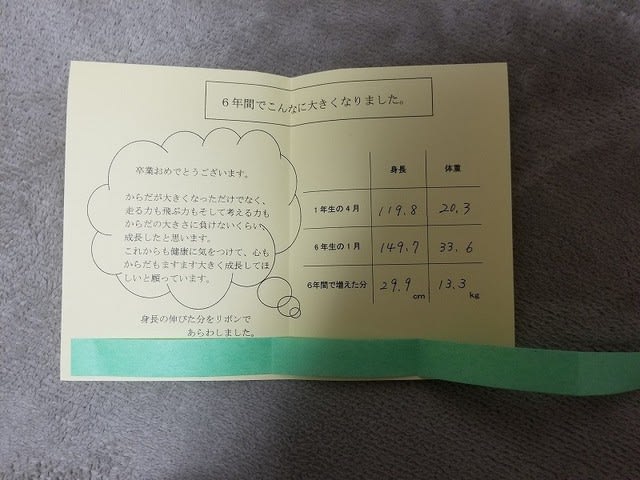 6年間でこんなに大きくなりました。
卒業おめでとうございます。
からだが大きくなっただけでなく、
走る力も飛ぶ力もそして考える力も
からだの大きさに負けないくらい
成長したと思います。
これからも健康に気をつけて、心も
からだもますます大きく成長してほ
しいと願っています。
身長の伸びた分をリボンで
あらわしました。
身長 体重
1年生の4月 119.8 20.3
6年生の1月 149.7 33.6
6年間で増えた分 29.9 cm 13.3 kg